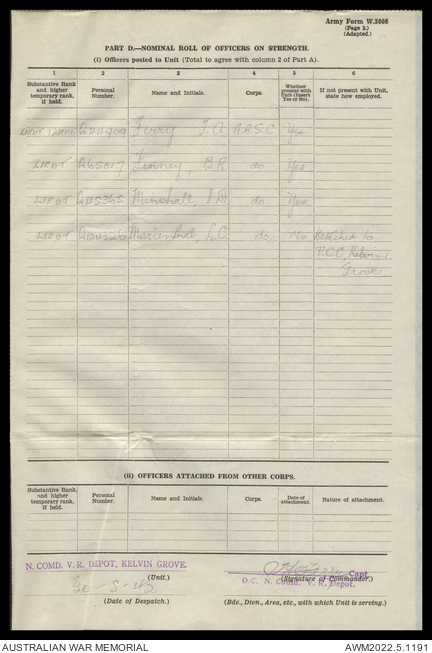 Army Form W.2008
(Page 2.)
(Adapted.)
PART D.—NOMINAL ROLL OF OFFICERS ON STRENGTH.
(i) Officers posted to Unit (Total to agree with column 2 of Part A).
1 2 3 4 5 6
Substantive Rank and higher temporary rank, if held. Personal Number. Name and Initials. Corps. Whether present with Unit (Insert Yes or No). If not present with Unit, state how employed.
Ferry A.A.S.C Yes
LIEUT Q65017 Kinney, B.R. do. Yes
LIEUT Q115365 Minshall, do. Yes
LIEUT do. No Detached to
Kelvin
Grove
(ii) OFFICERS ATTACHED FROM OTHER CORPS.
Substantive Rank, and higher temporary rank, if held. Personal Number. Name and Initials. Corps. Date of attachment. Nature of attachment.
N. COMD. V. R. DEPOT, KELVIN GROVE.
Capt
(Unit.) (Signature of Commander.)
O.C. N. Comd. V. R. Depot.
20-5-42
(Date of Despatch.) (Bde., Divn., Area, etc., with which Unit is serving.)
AUSTRALIAN WAR MEMORIAL AWM2022.5.1191